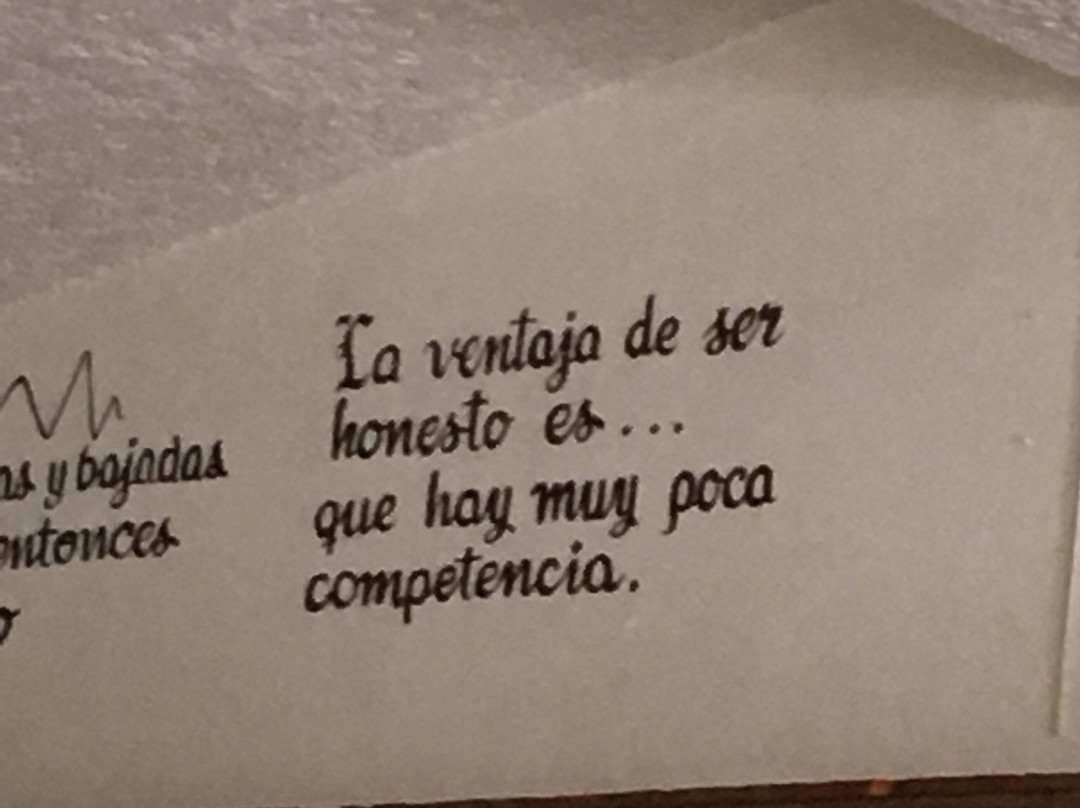 y bajadas
entonces
La ventaja de ser
honesto es...
que hay muy poca
competencia.